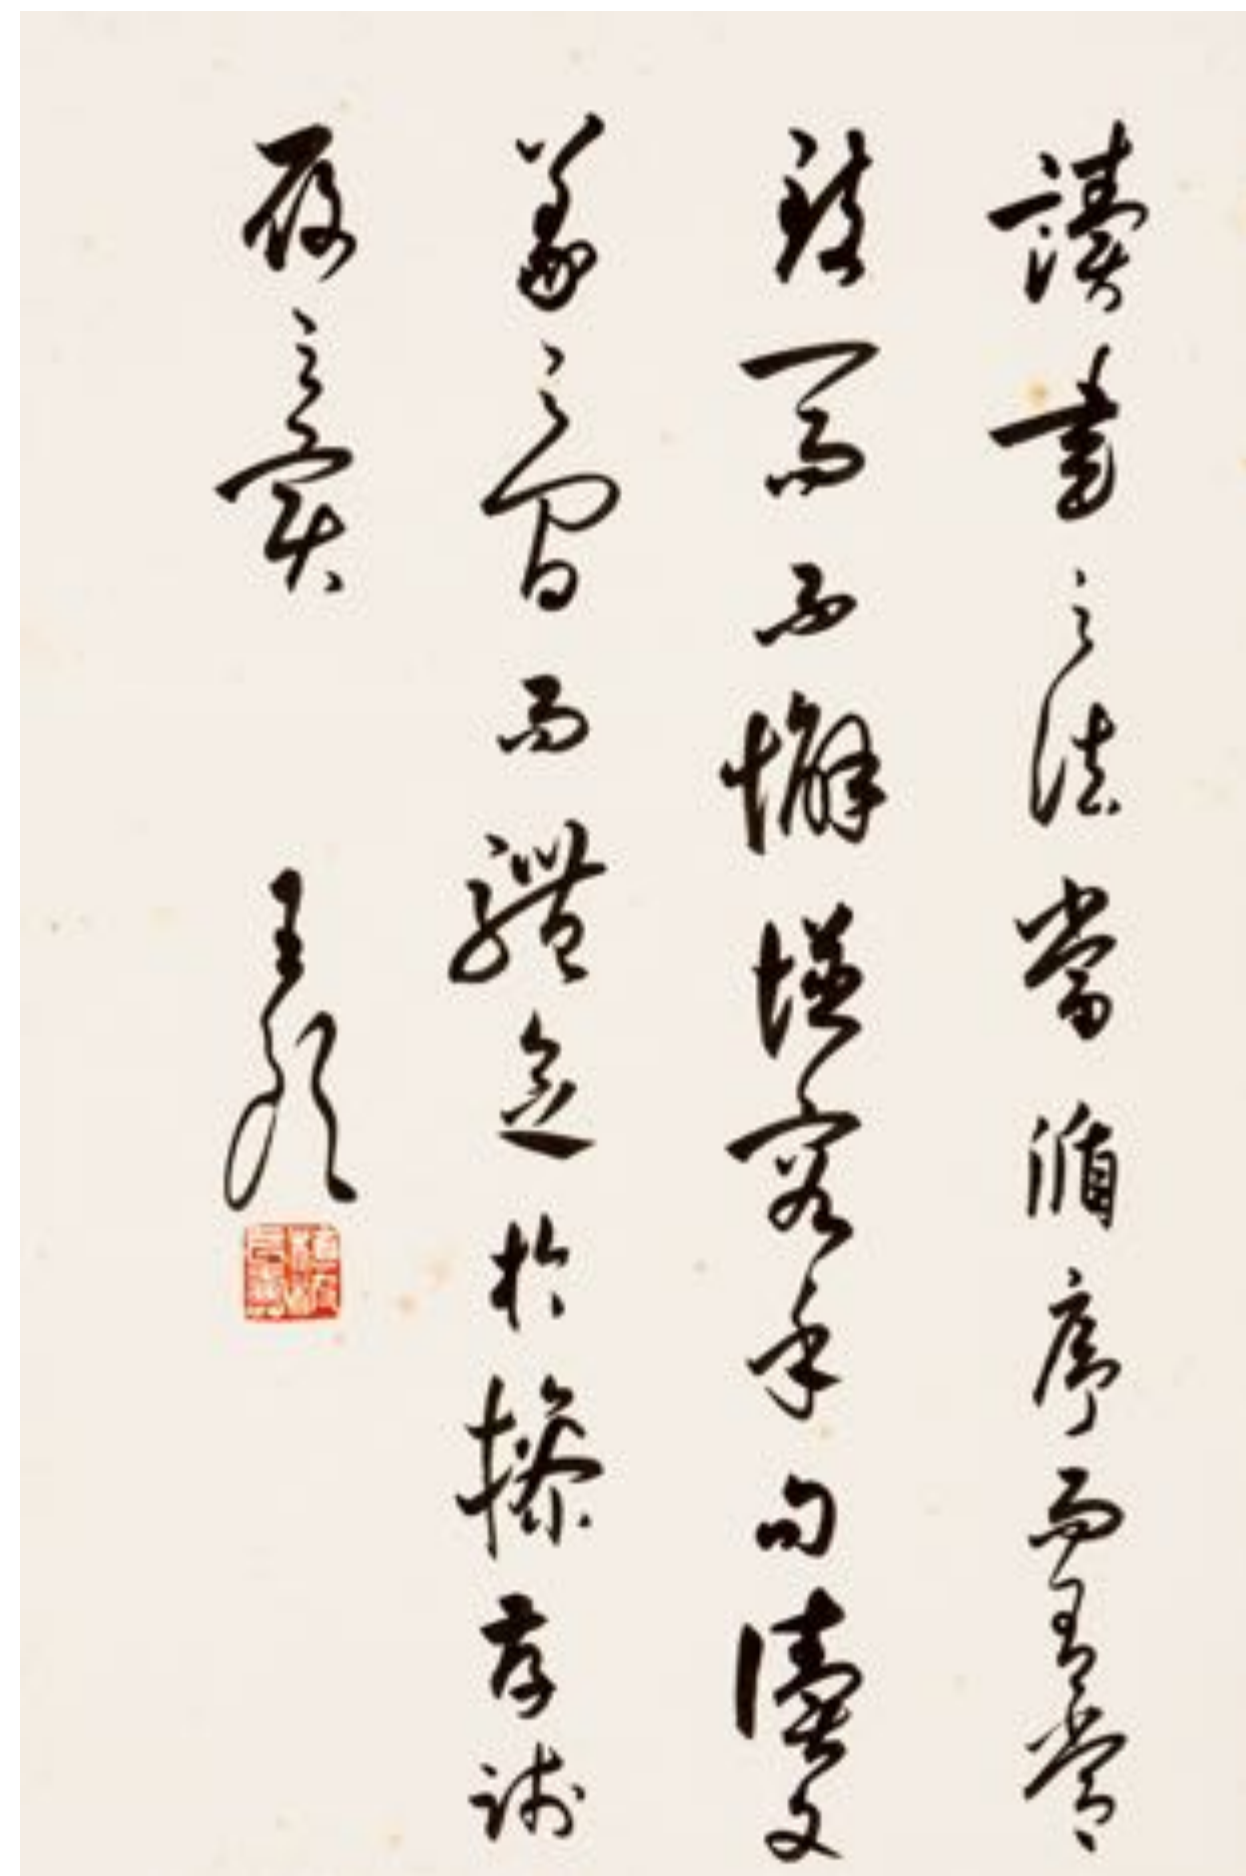 讀書之法當循序而有常
致一而不懈從容乎句讀文
義之間而體於操存踐
履之實
王